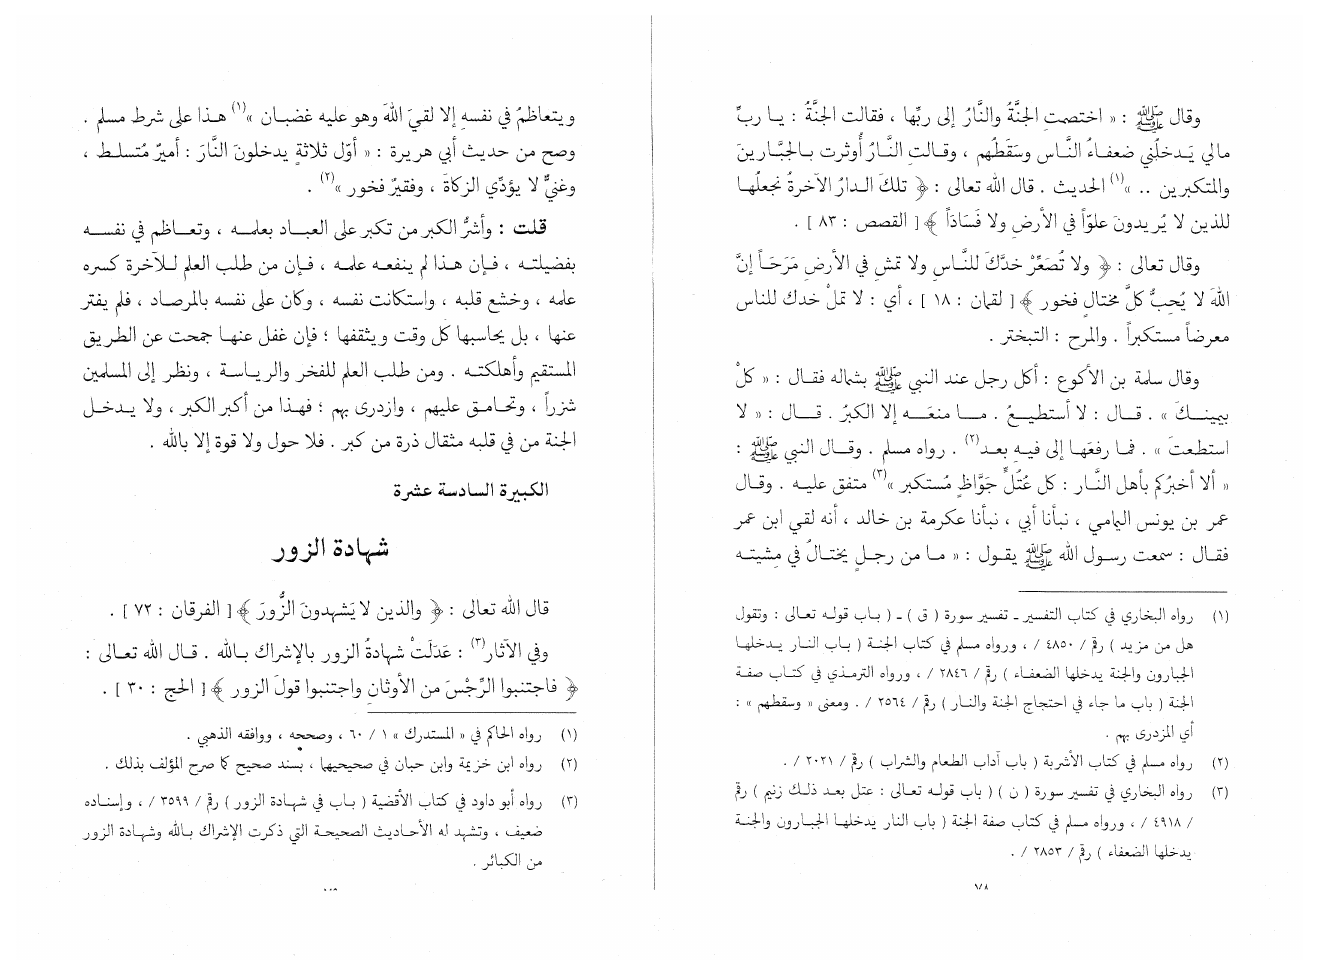 وقال ﷺ : « اختصمتِ الجنَّةُ والنَّارُ إلى ربِّها ، فقالت الجنَّةُ : يا ربِّ
مالي يَدخلُني ضعفاءُ النَّاس وسَقَطُهم ، وقالتِ النَّارُ أُوثرت بالجَبَّارينَ
والمتكبرين .. »(١) الحديث . قال الله تعالى : ﴿ تلكَ الدارُ الآخرةُ نجعلُها
للذين لا يُريدونَ علوّاً في الأرضِ ولا فَسَاداً ﴾ [ القصص : ٨٣ ] .
وقال تعالى : ﴿ ولا تُصَعِّرْ خدَّكَ للنَّاسِ ولا تمش في الأرضِ مَرَحَاً إنَّ
اللهَ لا يُحِبُّ كلَّ مختالٍ فخور ﴾ [ لقمان : ١٨ ] ، أي : لا تملْ خدك للناس
معرضاً مستكبراً . والمرح : التبختر .
وقال سلمة بن الأكوع : أكل رجل عند النبي ﷺ بشماله فقال : « كلْ
بيمينكَ » . قال : لا أستطيعُ . ما منعَه إلا الكبرُ . قال : « لا
استطعتَ » . فما رفعَها إلى فيهِ بعد(٢) . رواه مسلم . وقال النبي ﷺ :
« ألا أخبرُكم بأهل النَّار : كل عُتُلٍّ جَوَّاظٍ مُستكبر »(٣) متفق عليه . وقال
عمر بن يونس اليمامي ، نبأنا أبي ، نبأنا عكرمة بن خالد ، أنه لقي ابن عمر
فقال : سمعت رسول الله ﷺ يقول : « ما من رجلٍ يختالُ في مِشيته
(١) رواه البخاري في كتاب التفسير ـ تفسير سورة ( ق ) ـ ( باب قوله تعالى : وتقول
هل من مزيد ) رقم / ٤٨٥٠ / ، ورواه مسلم في كتاب الجنة ( باب النار يدخلها
الجبارون والجنة يدخلها الضعفاء ) رقم / ٢٨٤٦ / ، ورواه الترمذي في كتاب صفة
الجنة ( باب ما جاء في احتجاج الجنة والنار ) رقم / ٢٥٦٤ / . ومعنى « وسقطهم » :
أي المزدرى بهم .
(٢) رواه مسلم في كتاب الأشربة ( باب آداب الطعام والشراب ) رقم / ٢٠٢١ / .
(٣) رواه البخاري في تفسير سورة ( ن ) ( باب قوله تعالى : عتل بعد ذلك زنيم ) رقم
/ ٤٩١٨ / ، ورواه مسلم في كتاب صفة الجنة ( باب النار يدخلها الجبارون والجنة
يدخلها الضعفاء ) رقم / ٢٨٥٣ / .
ويتعاظمُ في نفسهِ إلا لقيَ اللهَ وهو عليه غضبان »(١) هذا على شرط مسلم .
وصح من حديث أبي هريرة : « أوّل ثلاثةٍ يدخلونَ النَّارَ : أميرٌ مُتسلط ،
وغنيٌّ لا يؤدِّي الزكاةَ ، وفقيرٌ فخور »(٢) .
قلت : وأشرُّ الكبر من تكبر على العباد بعلمه ، وتعاظم في نفسه
بفضيلته ، فإن هذا لم ينفعه علمه ، فإن من طلب العلم للآخرة كسره
علمه ، وخشع قلبه ، واستكانت نفسه ، وكان على نفسه بالمرصاد ، فلم يفتر
عنها ، بل يحاسبها كل وقت ويثقفها ؛ فإن غفل عنها جمحت عن الطريق
المستقيم وأهلكته . ومن طلب العلم للفخر والرياسة ، ونظر إلى المسلمين
شزراً ، وتحامق عليهم ، وازدرى بهم ؛ فهذا من أكبر الكبر ، ولا يدخل
الجنة من في قلبه مثقال ذرة من كبر . فلا حول ولا قوة إلا بالله .
الكبيرة السادسة عشرة
شهادة الزور
قال الله تعالى : ﴿ والذين لا يَشهدونَ الزُّورَ ﴾ [ الفرقان : ٧٢ ] .
وفي الآثار(٣) : عَدَلَتْ شهادةُ الزور بالإشراك بالله . قال الله تعالى :
﴿ فاجتنبوا الرِّجْسَ من الأوثانِ واجتنبوا قولَ الزور ﴾ [ الحج : ٣٠ ] .
(١) رواه الحاكم في « المستدرك » ١ / ٦٠ ، وصححه ، ووافقه الذهبي .
(٢) رواه ابن خزيمة وابن حبان في صحيحيهما ، بسند صحيح كما صرح المؤلف بذلك .
(٣) رواه أبو داود في كتاب الأقضية ( باب في شهادة الزور ) رقم / ٣٥٩٩ / ، وإسناده
ضعيف ، وتشهد له الأحاديث الصحيحة التي ذكرت الإشراك بالله وشهادة الزور
من الكبائر .